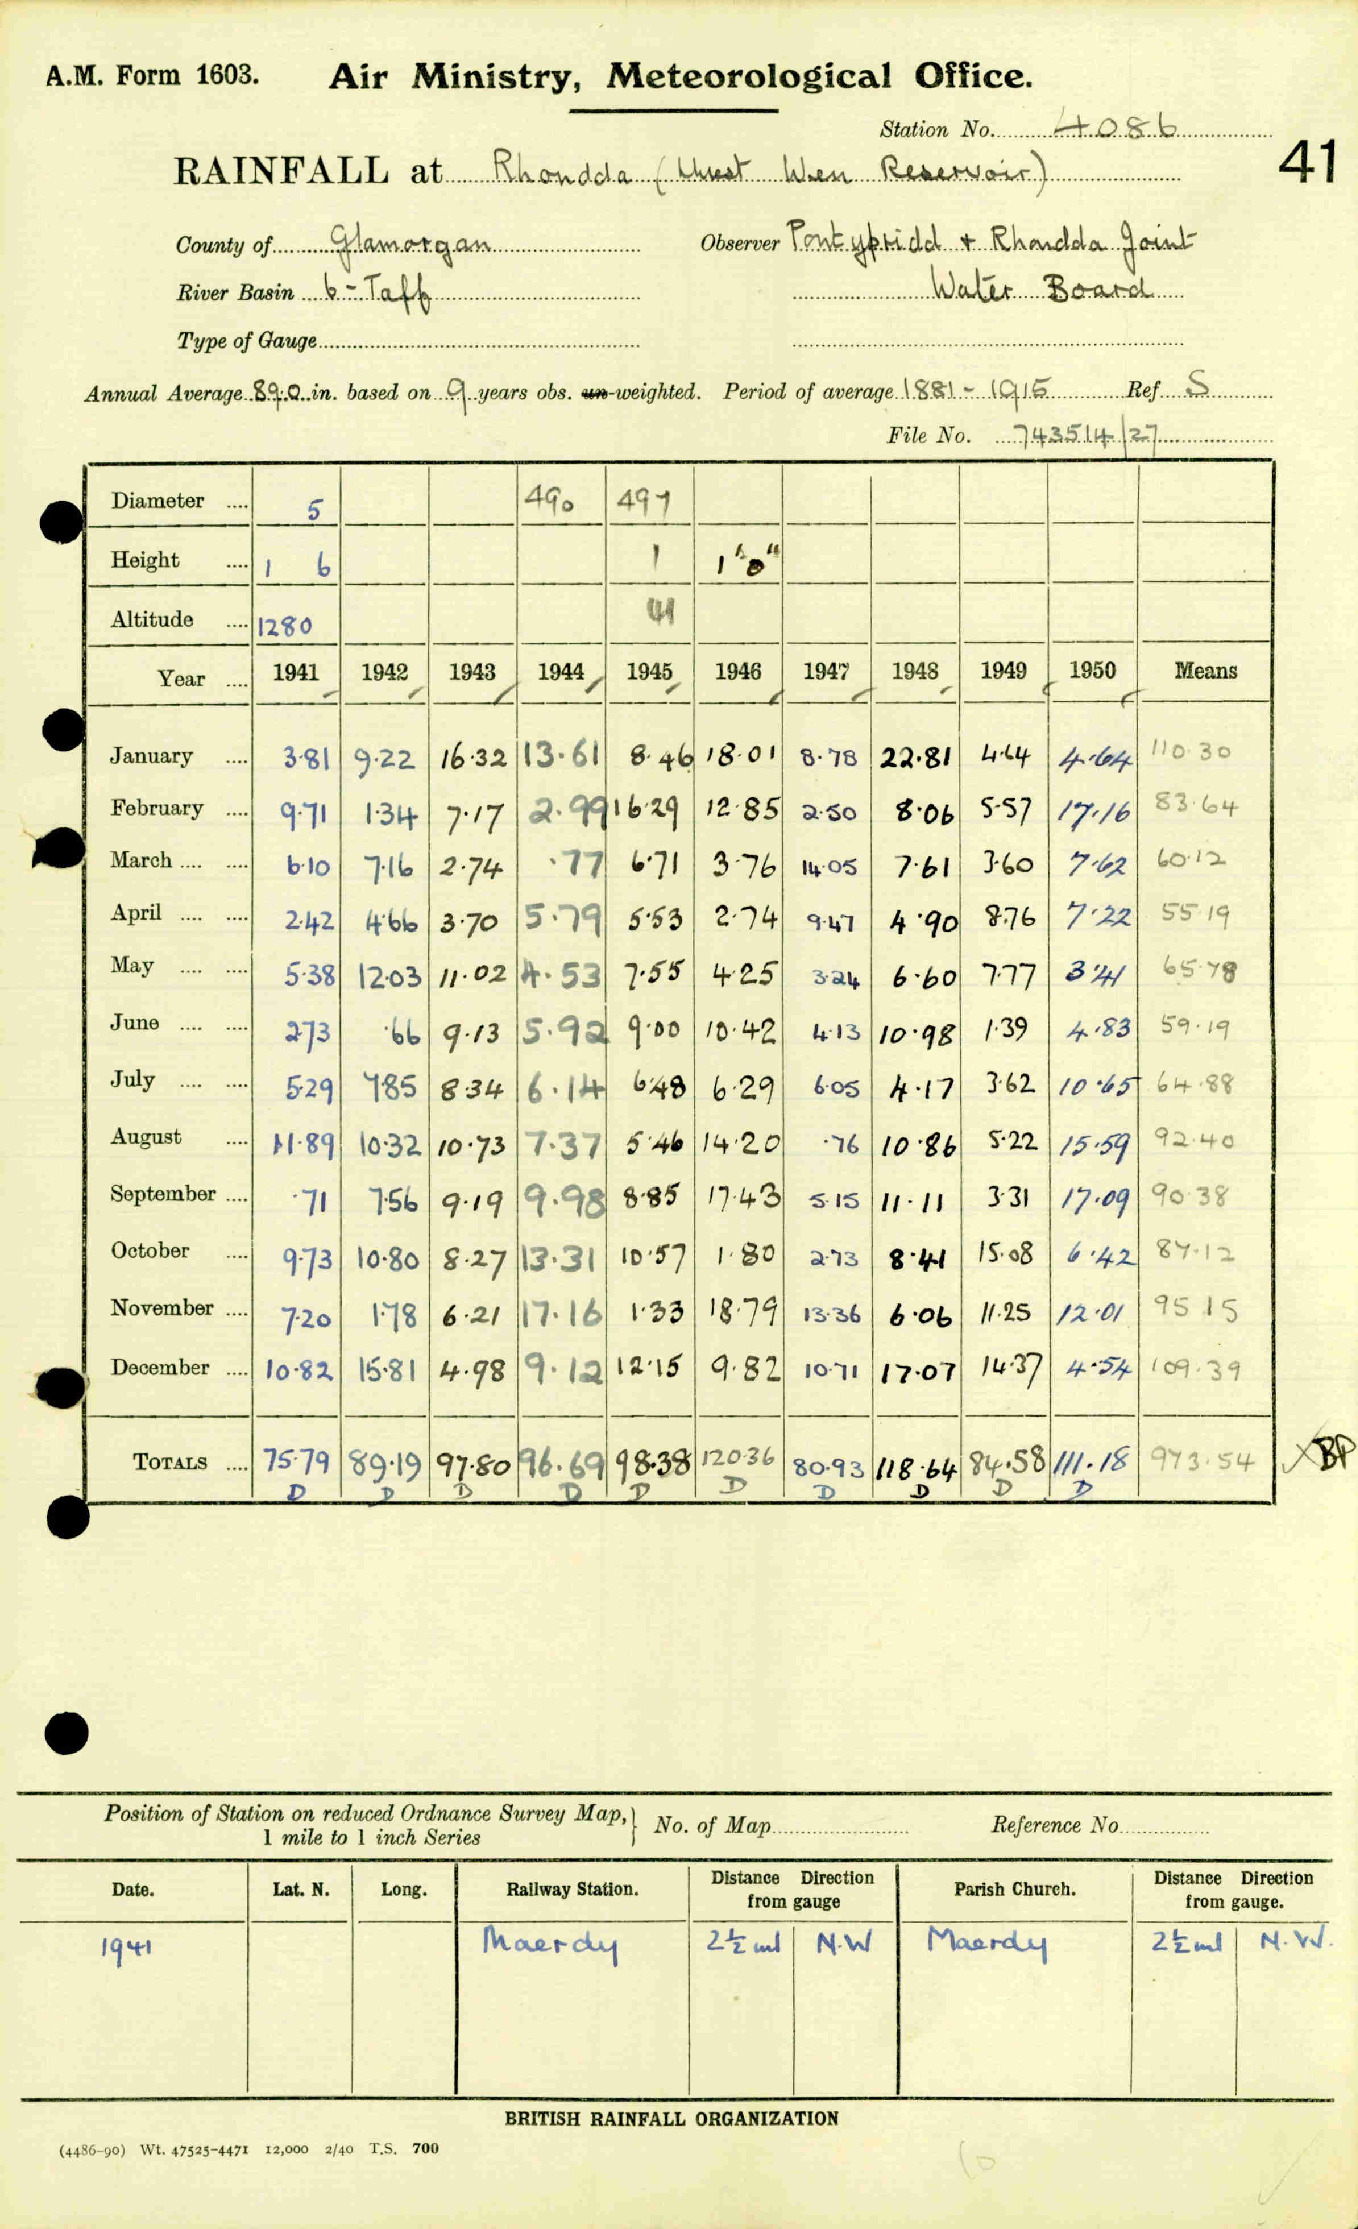 A.M. Form 1603. Air Ministry, Meteorological Office.
Station No. 4086
41
RAINFALL at Rhondda ( Wen Reservoir)
County of Glamorgan Observer Pontypridd + Rhondda Joint
River Basin 6-Taff Water Board
Type of Gauge
Annual Average 89.0 in. based on 9 years obs. un-weighted. Period of average 1881-1915 Ref S
File No. 743514/27
Diameter .... 5 490 497
Height .... 1 6 1 1'0"
Altitude .... 1280 41
Year .... 1941 1942 1943 1944 1945 1946 1947 1948 1949 1950 Means
January .... 3.81 9.22 16.32 13.61 8.46 18.01 8.78 22.81 4.64 4.64 110.30
February .... 9.71 1.34 7.17 2.99 16.29 12.85 2.50 8.06 5.57 17.16 83.64
March .... .... 6.10 7.16 2.74 .77 6.71 3.76 14.05 7.61 3.60 7.62 60.12
April .... .... 2.42 4.66 3.70 5.79 5.53 2.74 9.47 4.90 8.76 7.22 55.19
May .... .... 5.38 12.03 11.02 4.53 7.55 4.25 3.24 6.60 7.77 3.41 65.78
June .... .... 2.73 .66 9.13 5.92 9.00 10.42 4.13 10.98 1.39 4.83 59.19
July .... .... 5.29 7.85 8.34 6.14 6.48 6.29 6.05 4.17 3.62 10.65 64.88
August .... 11.89 10.32 10.73 7.37 5.46 14.20 .76 10.86 5.22 15.59 92.40
September .... .71 7.56 9.19 9.98 8.85 17.43 5.15 11.11 3.31 17.09 90.38
October .... 9.73 10.80 8.27 13.31 10.57 1.80 2.73 8.41 15.08 6.42 87.12
November .... 7.20 1.78 6.21 17.16 1.33 18.79 13.36 6.06 11.25 12.01 95.15
December .... 10.82 15.81 4.98 9.12 12.15 9.82 10.71 17.07 14.37 4.54 109.39
TOTALS .... 75.79 89.19 97.80 96.69 98.38 120.36 80.93 118.64 84.58 111.18 973.54 BP
D D D D D D D D D D
Position of Station on reduced Ordnance Survey Map, 1 mile to 1 inch Series } No. of Map Reference No.
Date. Lat. N. Long. Railway Station. Distance Direction from gauge Parish Church. Distance Direction from gauge.
1941 Maerdy 2½ ml N.W Maerdy 2½ ml N.W.
BRITISH RAINFALL ORGANIZATION
(4486-90) Wt. 47525-4471 12,000 2/40 T.S. 700
10